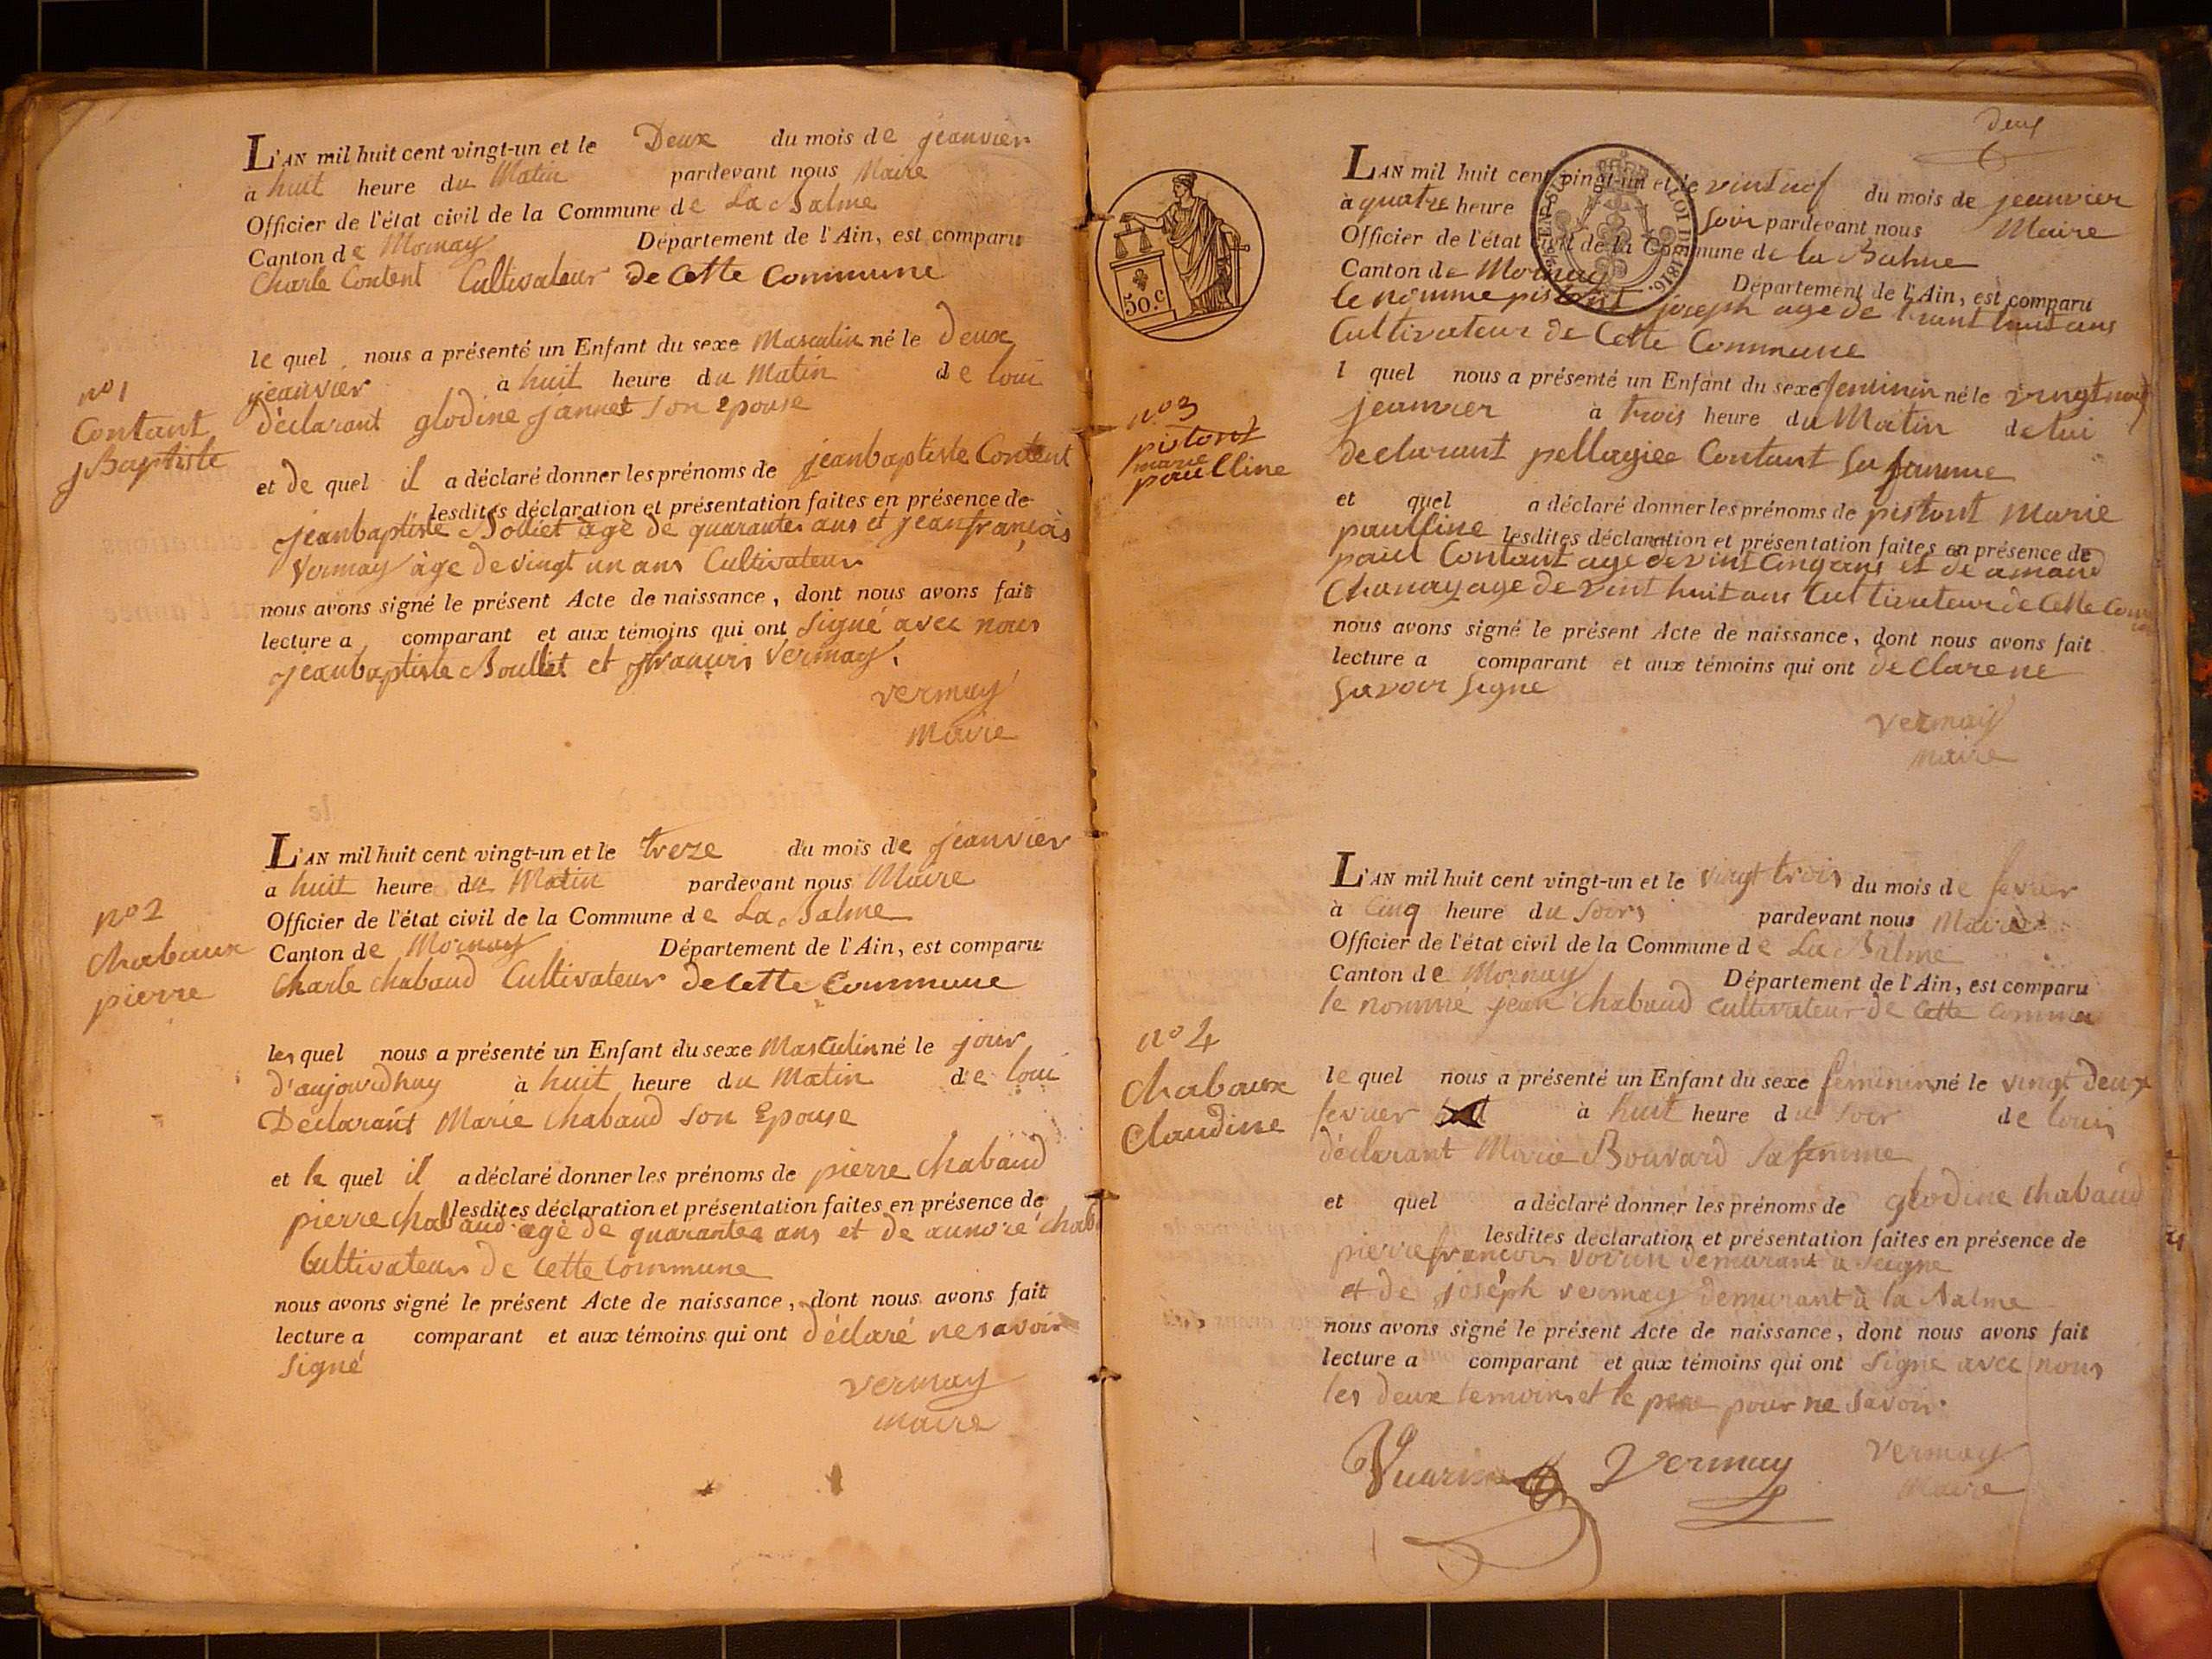 L'AN mil huit cent vingt-un et le Deux du mois de jeanvier
à huit heure du Matin pardevant nous Maire
Officier de l'état civil de la Commune de La Balme
Canton de Mornay Département de l'Ain, est comparu
Charle Content Cultivateur de Cette Commune
le quel nous a présenté un Enfant du sexe Masculin né le deux
jeanvier à huit heure du Matin de loui
déclarant glodine jannet son Epouse
et de quel il a déclaré donner les prénoms de jeanbaptiste Content
lesdites déclaration et présentation faites en présence de
jeanbaptiste Bolliet àgé de quarantes ans et jeanfrançois
Vermay àge de vingt un ans Cultivateur
nous avons signé le présent Acte de naissance, dont nous avons fait
lecture a comparant et aux témoins qui ont signé avec nous
jeanbaptiste Boullet et francois Vermay.
vermay
Maire
n° 1
Contant
jBaptiste
L'AN mil huit cent vingt-un et le treze du mois de jeanvier
a huit heure du Matin pardevant nous Maire
Officier de l'état civil de la Commune de La Balme
Canton de Mornay Département de l'Ain, est comparu
Charle Chabaud Cultivateur de Cette Commune
les quel nous a présenté un Enfant du sexe Masculin né le jour
d'aujourdhuy à huit heure du Matin de loui
Déclarant Marie Chabaud son Epouse
et le quel il a déclaré donner les prénoms de pierre Chabaud
lesdites déclaration et présentation faites en présence de
pierre Chabaud agé de quarantes ans et de
Cultivateurs de Cette Commune
nous avons signé le présent Acte de naissance, dont nous avons fait
lecture a comparant et aux témoins qui ont déclaré ne savoir
signé
vermay
maire
n° 2
Chabaux
pierre
deux
L'AN mil huit cent vingt-un et le vint nof du mois de jeanvier
à quatre heure Soir pardevant nous Maire
Officier de l'état civil de la Commune de la Balme
Canton de Mornay Département de l'Ain, est comparu
le nomme pistont joseph age de trant huit ans
Cultivateur de Cette Commune
l quel nous a présenté un Enfant du sexe feminin né le vingt nof
jeanvier à trois heure du Matin de lui
declarant pellagiee Contant sa famme
et quel a déclaré donner les prénoms de pistont Marie
paulline lesdites déclaration et présentation faites en présence de
paul Contant age de vint Cinq ans et de amand
Chanay age de vint huit ans Cultivateur de Cette Com
nous avons signé le présent Acte de naissance, dont nous avons fait
lecture a comparant et aux témoins qui ont declare ne
savoir signe
vermay
maire
50.c
LOI DE 1816.
n° 3
pistont
marie
paulline
L'AN mil huit cent vingt-un et le vingt trois du mois de fevrier
à Cinq heure du soirs pardevant nous Maire
Officier de l'état civil de la Commune de La Balme
Canton de Mornay Département de l'Ain, est comparu
le nommé jean Chabaud Cultivateur de Cette Commu
le quel nous a présenté un Enfant du sexe feminin né le vingt deux
fevrier à huit heure du soir de louis
déclarant Marie Bouvard sa femme
et quel a déclaré donner les prénoms de glodine Chabaud
lesdites déclaration et présentation faites en présence de
pierre francois demurant a
et de joséph vermay demurant à la Balme
nous avons signé le présent Acte de naissance, dont nous avons fait
lecture a comparant et aux témoins qui ont signe avec nous
les deux temoins et le pere pour ne savoir.
Vuarin Vermay vermay
Maire
n° 4
Chabaux
Claudine